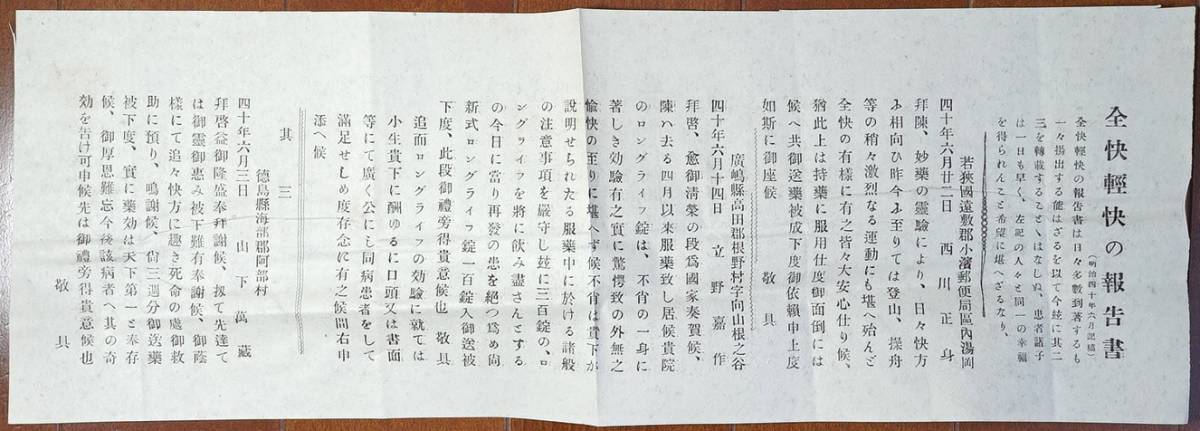 全快輕快の報告書
(明治四十年六月記稿)
全快輕快の報告書は日々多數到著するも
一々揭出する能はざるを以て今玆に其二
三を轉載することゝはなしぬ、患者諸子
は一日も早く、左記の人々と同一の幸福
を得られんこと希望に堪へざるなり、
若狹國遠敷郡小濱郵便局區內湯岡
四十年六月廿二日 西川正身
拜陳、妙藥の靈驗により、日々快方
ふ相向ひ昨今ふ至りては登山、操舟
等の稍々激烈なる運動にも堪へ殆んど
全快の有樣に有之皆々大安心仕り候、
猶此上は持藥に服用仕度御面倒には
候へ共御送藥被成下度御依賴申上度
如斯に御座候 敬具
廣嶋縣高田郡根野村字向山根之谷
四十年六月十四日 立野嘉作
拜啓、愈御淸榮の段爲國家奏賀候、
陳ハ去る四月以來服藥致し居候貴院
のロングライフ錠は、不肖の一身に
著しき効驗有之實に驚愕致の外無之
愉快の至りに堪へず候不肖は貴下が
說明せられたる服藥中に於ける諸般
の注意事項を嚴守し玆に三百錠の、ロ
ングライフを將に飮み盡さんとする
の今日に當り再發の患を絕つ爲め尙
新式ロングライフ錠一百錠入御送被
下度、此段御禮旁得貴意候也 敬具
追而ロングライフの効驗に就ては
小生貴下に酬ゆるに口頭又は書面
等にて廣く公にし同病患者をして
滿足せしめ度存念に有之候間右申
添へ候
其三
德島縣海部郡阿部村
四十年六月三日 山下萬藏
拜啓益御隆盛奉拜謝候、扨て先達て
は御靈御惠み被下難有奉謝候、御蔭
樣にて追々快方に趣き死命の處御救
助に預り、鳴謝候、尙三週分御送藥
被下度、實に藥効は天下第一と奉存
候、御厚恩難忘今後該病者へ其の奇
効を吿げ可申候先は御禮旁得貴意候也
敬具